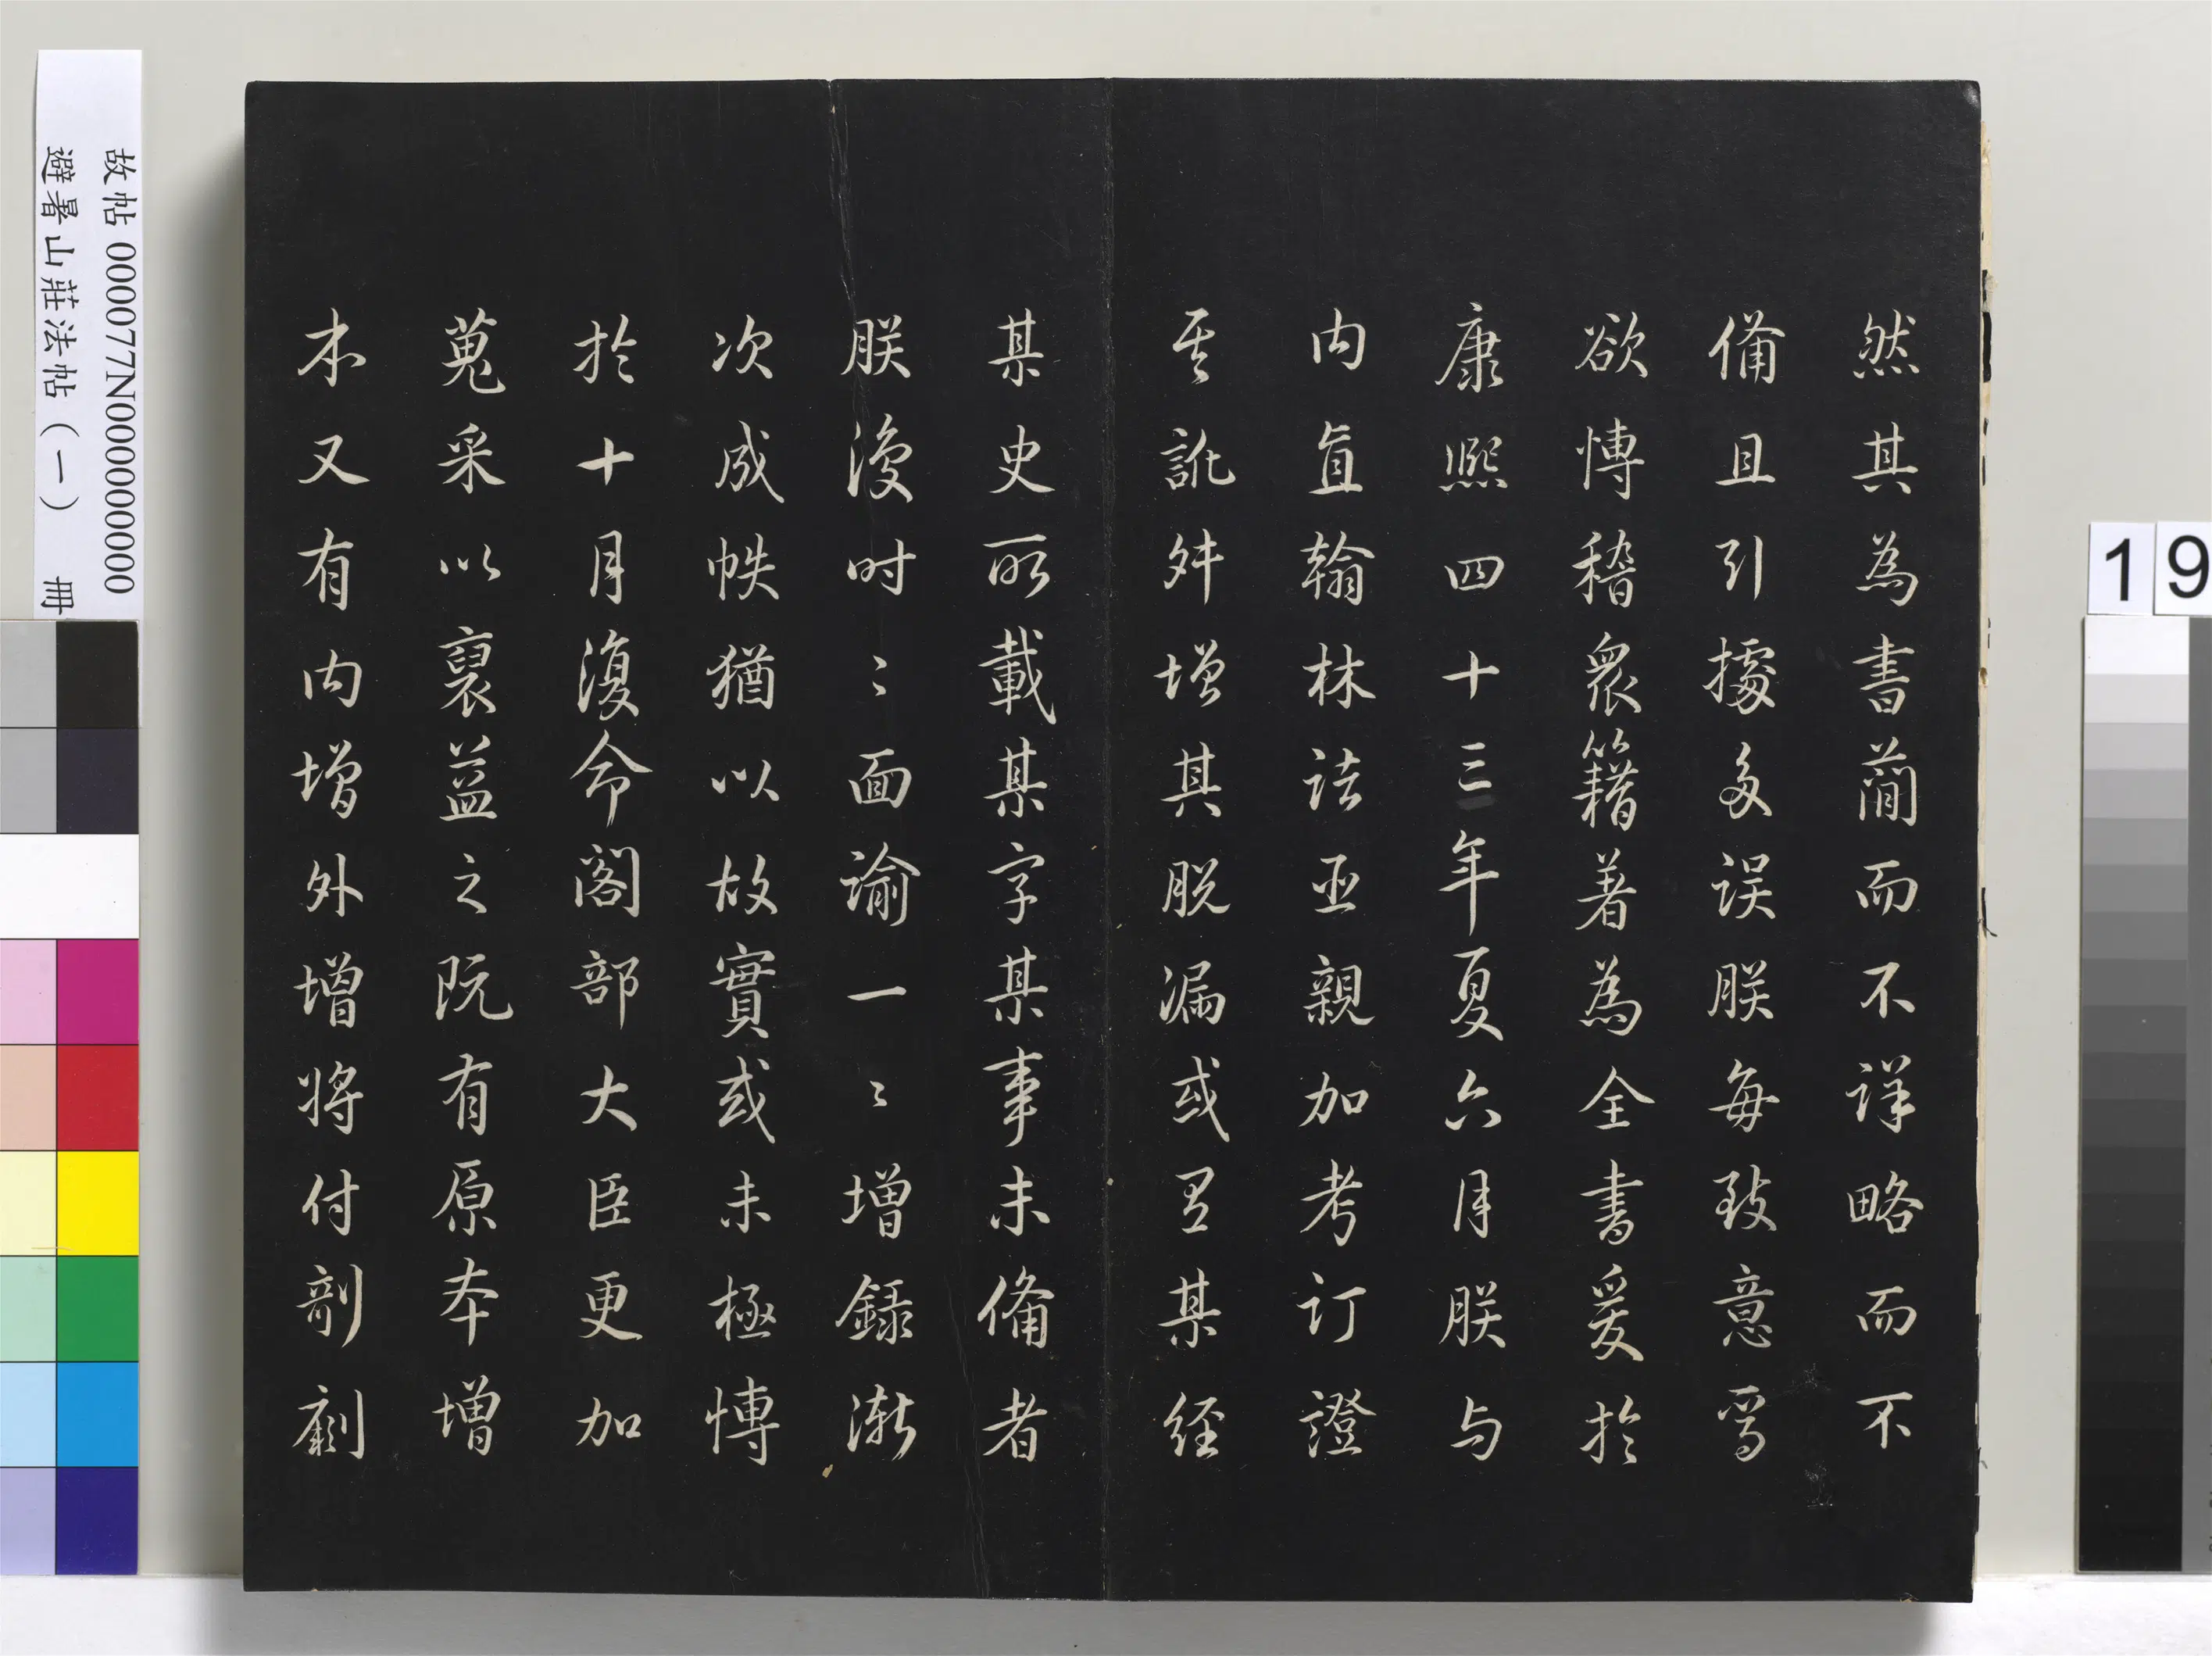 然其為書簡而不詳略而不
備且引據多誤朕每致意焉
欲愽稽衆籍著為全書爰於
康熙四十三年夏六月朕与
內直翰林諸臣親加考訂證
其訛舛增其脫漏或有某經
某史所載某字某事未備者
朕復时〻面諭一〻增錄漸
次成帙猶以故實或未極愽
於十月復命閣部大臣更加
蒐采以裒益之既有原本增
本又有內增外增將付剞劂
故帖 000077N000000000
避暑山莊法帖（一） 冊
19